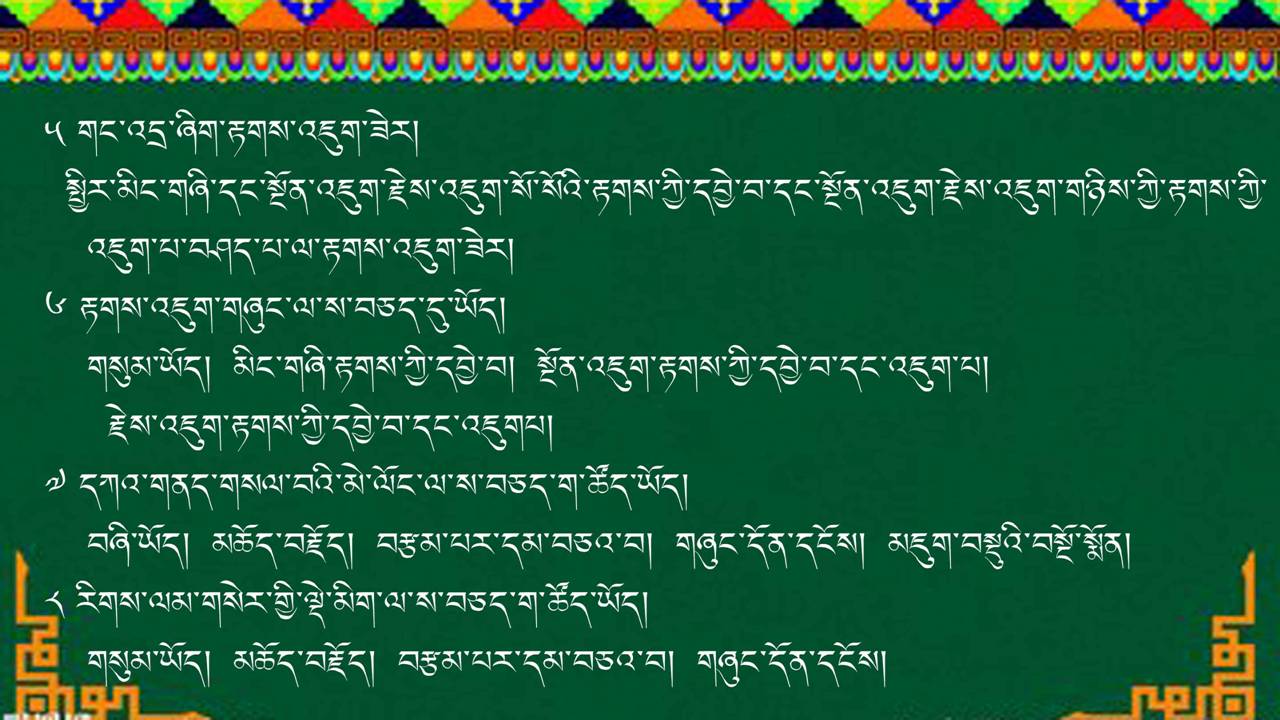 ༥ གང་འདྲ་ཞིག་རྟགས་འཇུག་ཟེར།
སྤྱིར་མིང་གཞི་དང་སྔོན་འཇུག་རྗེས་འཇུག་སོ་སོའི་རྟགས་ཀྱི་དབྱེ་བ་དང་སྔོན་འཇུག་རྗེས་འཇུག་གཉིས་ཀྱི་རྟགས་ཀྱི་
འཇུག་པ་བཤད་པ་ལ་རྟགས་འཇུག་ཟེར།
༦ རྟགས་འཇུག་གཞུང་ལ་ས་བཅད་དུ་ཡོད།
གསུམ་ཡོད། མིང་གཞི་རྟགས་ཀྱི་དབྱེ་བ། སྔོན་འཇུག་རྟགས་ཀྱི་དབྱེ་བ་དང་འཇུག་པ།
རྗེས་འཇུག་རྟགས་ཀྱི་དབྱེ་བ་དང་འཇུགཔ།
༧ དཀའ་གནད་གསལ་བའི་མེ་ལོང་ལ་ས་བཅད་ག་ཚོད་ཡོད།
བཞི་ཡོད། མཆོད་བརྗོད། བརྩམ་པར་དམ་བཅའ་བ། གཞུང་དོན་དངོས། མཇུག་བསྡུའི་བསྔོ་སྨོན།
༨ རིགས་ལམ་གསེར་གྱི་ལྡེ་མིག་ལ་ས་བཅད་ག་ཚོད་ཡོད།
གསུམ་ཡོད། མཆོད་བརྗོད། བརྩམ་པར་དམ་བཅའ་བ། གཞུང་དོན་དངོས།